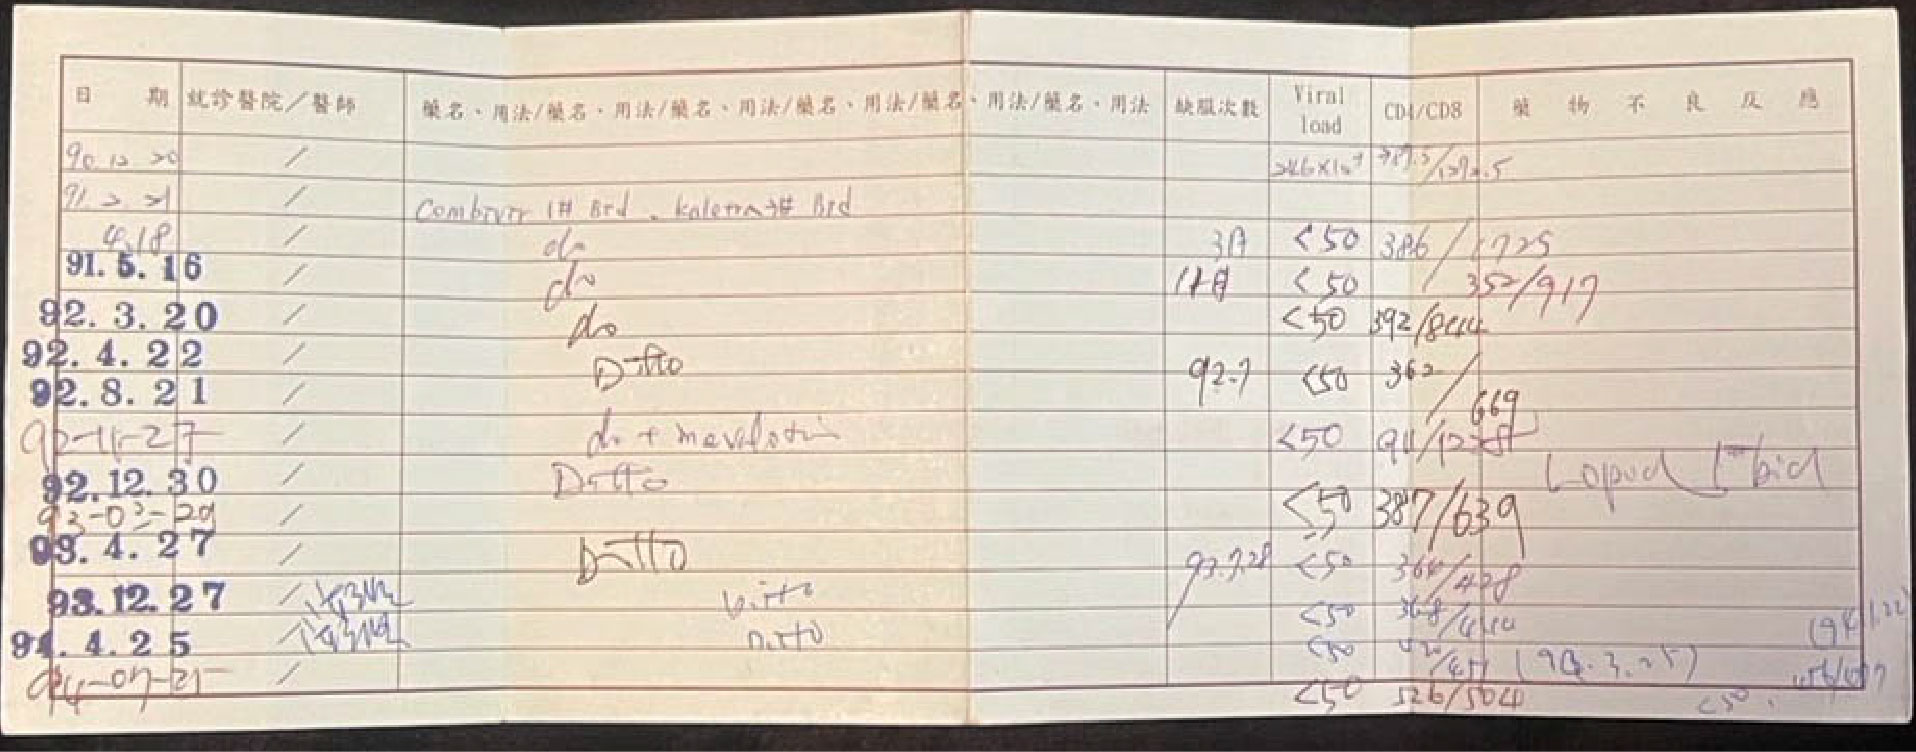 日 期 就診醫院／醫師 藥名、用法/藥名、用法/藥名、用法/藥名、用法/藥名、用法/藥名、用法 缺服次數 Viral load CD4/CD8 藥 物 不 良 反 應
90.12.20 /
91.2.21 / Combivir 1# Bid、Kaletra 3# Bid
4.18 / do <50 386/
91.5.16 / do <50 352/917
92.3.20 / do <50 392/844
92.4.22 / Ditto 92.7 <50 362/669
92.8.21 /
92-11-27 / do + mevalotin <50
92.12.30 / Ditto Lopid bid
93-03-29 / <50 387/639
93.4.27 / Ditto 93.7.28 <50 364/428
93.12.27 / Ditto <50 368/
94.4.25 / Ditto <50 (94.3.25)
94-07-25 / <50 526/504 <50